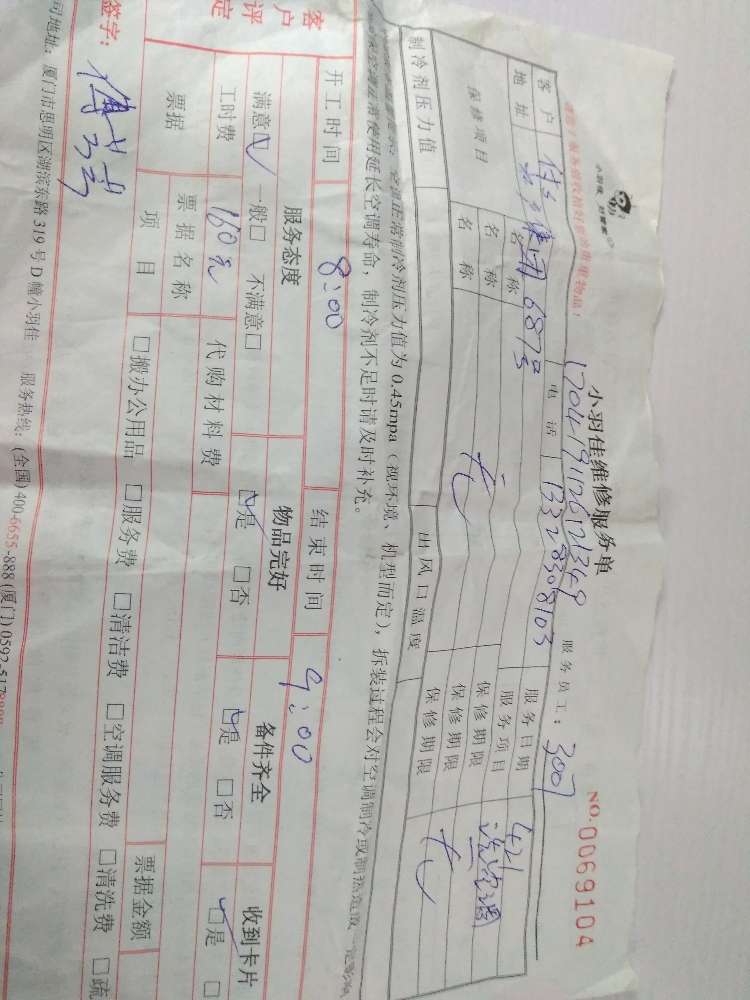 小羽佳维修服务单
NO.0069104
服务员工: 3007
客户
电话 13328308103
服务日期
地址 集团687号
服务项目 洗空调
保修项目
名称
保修期限
名称
保修期限
名称 无
保修期限 无
制冷剂压力值
出风口温度
空调正常制冷剂压力值为0.45mpa（视环境、机型而定），拆装过程会对空调制冷或制热造成一定影响
使用延长空调寿命，制冷剂不足时请及时补充。
开工时间 8:00 结束时间 9:00
客户评定
服务态度 物品完好 备件齐全 收到卡片
满意☑ 一般□ 不满意□ ☑是 □否 ☑是 □否 ☑是 □
工时费 160元 代购材料费
票据 票据名称 票据金额
项目 □搬办公用品 □服务费 □清洁费 □空调服务费 □清洗费 □疏
签字:
司地址: 厦门市思明区湖滨东路319号D幢小羽佳 服务热线: (全国)400-6655-888 (厦门)0592-517